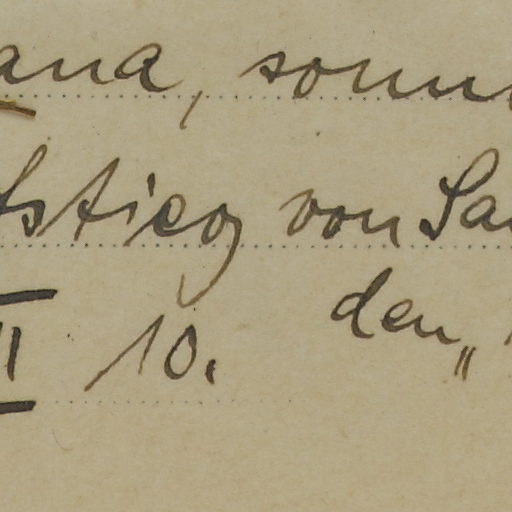 ana, sonn
stieg von Sa
II 10. den „